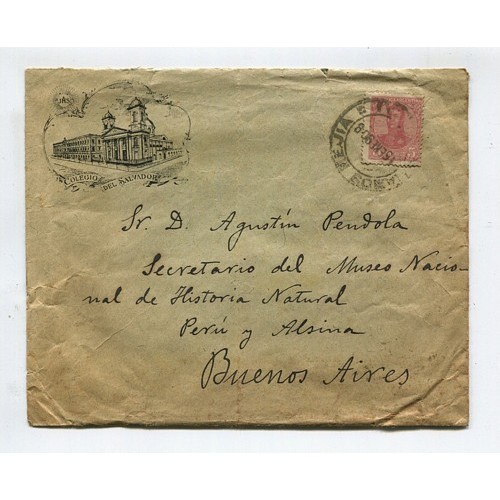 JHS
COLEGIO DEL SALVADOR
5
Sr. D. Agustín Pendola
Secretario del Museo Nacio-
nal de Historia Natural
Perú y Alsina
Buenos Aires